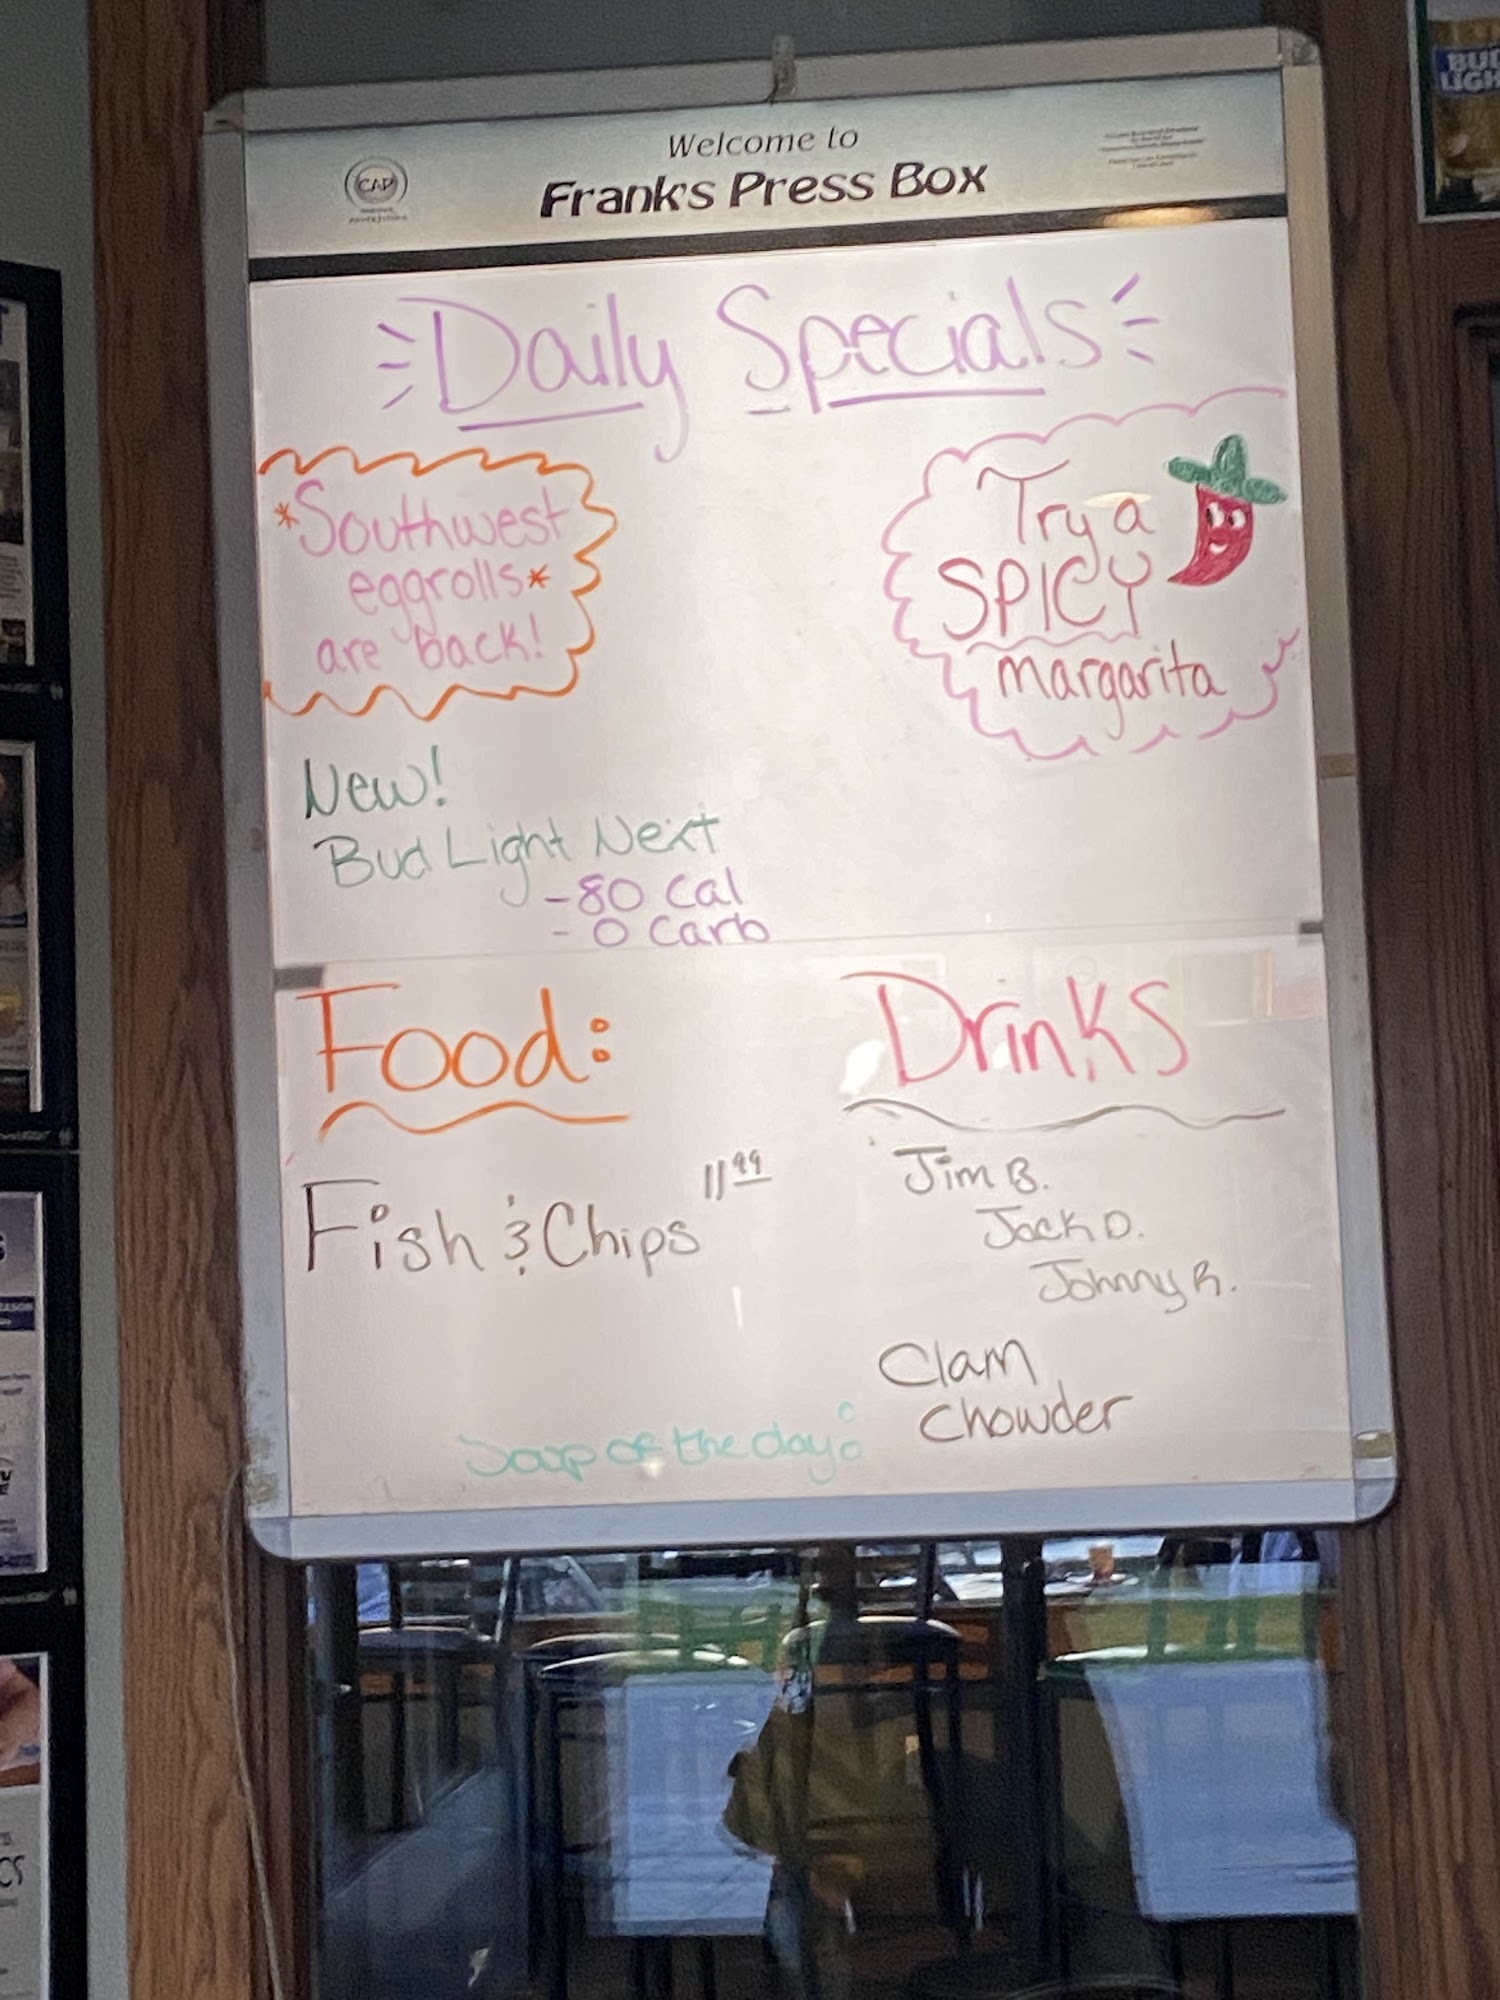 Welcome to
Frank's Press Box
CAP
Daily Specials
*Southwest
eggrolls*
are back!
Try a
SPICY
margarita
New!
Bud Light Next
-80 Cal
- 0 Carb
Food:
Fish & Chips 11.99
Drinks
Jim B.
Jack D.
Johnny R.
Soup of the day:
Clam
Chowder
BUD
LIGH